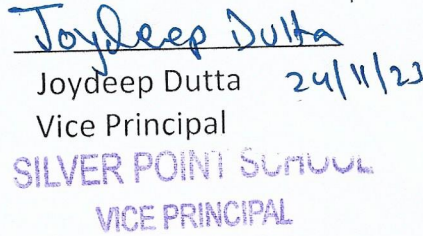 Joydeep Dutta
Joydeep Dutta 24/11/23
Vice Principal
SILVER POINT SCHOOL
VICE PRINCIPAL